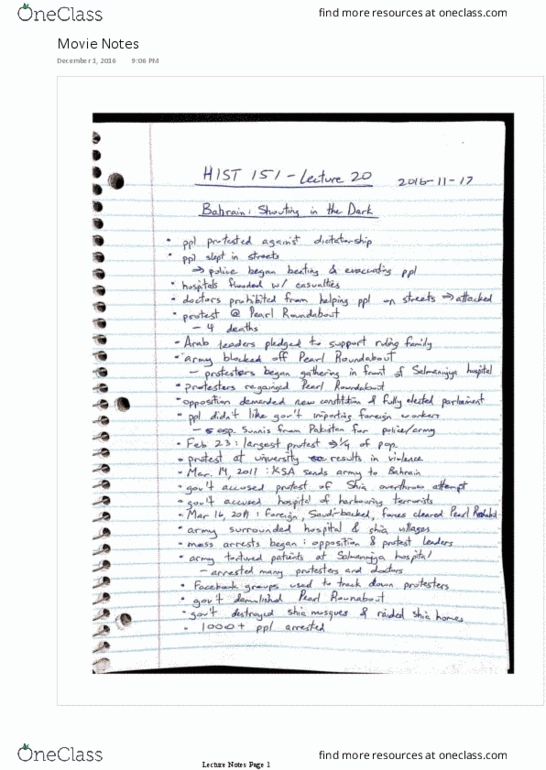 OneClass
find more resources at oneclass.com
Movie Notes
December 1, 2016 9:06 PM
HIST 151 - Lecture 20 2016-11-17
Bahrain: Shouting in the Dark
• ppl protested against dictatorship
• ppl slept in streets
→ police began beating & evacuating ppl
• hospitals flooded w/ casualties
• doctors prohibited from helping ppl on streets → attacked
• protest @ Pearl Roundabout
- 4 deaths
- Arab leaders pledged to support ruling family
• army blocked off Pearl Roundabout
- protesters began gathering in front of Salmaniya hospital
• protesters regained Pearl Roundabout
• opposition demanded new constitution & fully elected parliament
• ppl didn't like gov't importing foreign workers
- esp. Sunnis from Pakistan for police/army
• Feb 23: largest protest → 1/4 of pop.
• protest at university results in violence
• Mar 14, 2011: KSA sends army to Bahrain
• gov't accused protest of Shia overthrow attempt
• gov't accused hospital of harbouring terrorists
• Mar 16, 2011: Foreign, Saudi-backed, forces cleared Pearl
• army surrounded hospital & shia villages
• mass arrests began: opposition & protest leaders
• army tortured patients at Salmaniya hospital
- arrested many protesters and doctors
• Facebook groups used to track down protesters
• gov't demolished Pearl Rounabout
• gov't destroyed shia mosques & raided shia homes
• 1000+ ppl arrested
OneClass
Lecture Notes Page 1
find more resources at oneclass.com